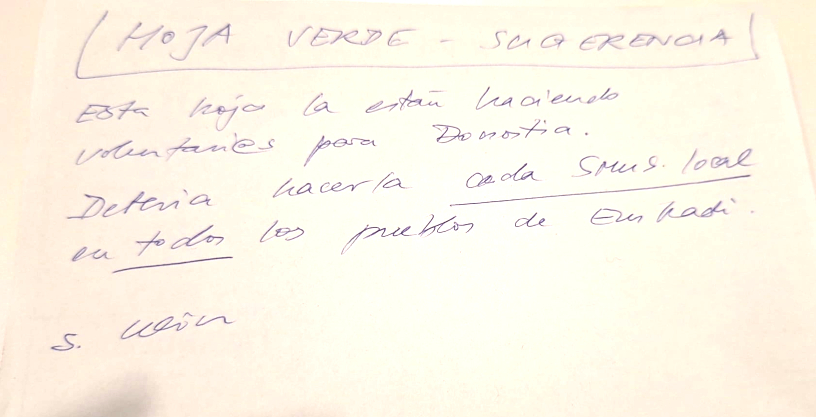 HOJA VERDE - SUGERENCIA
Esta hoja la están haciendo
voluntari@s para Donostia.
Debería hacerla cada SMUS. local
en todos los pueblos de Euskadi.
S.